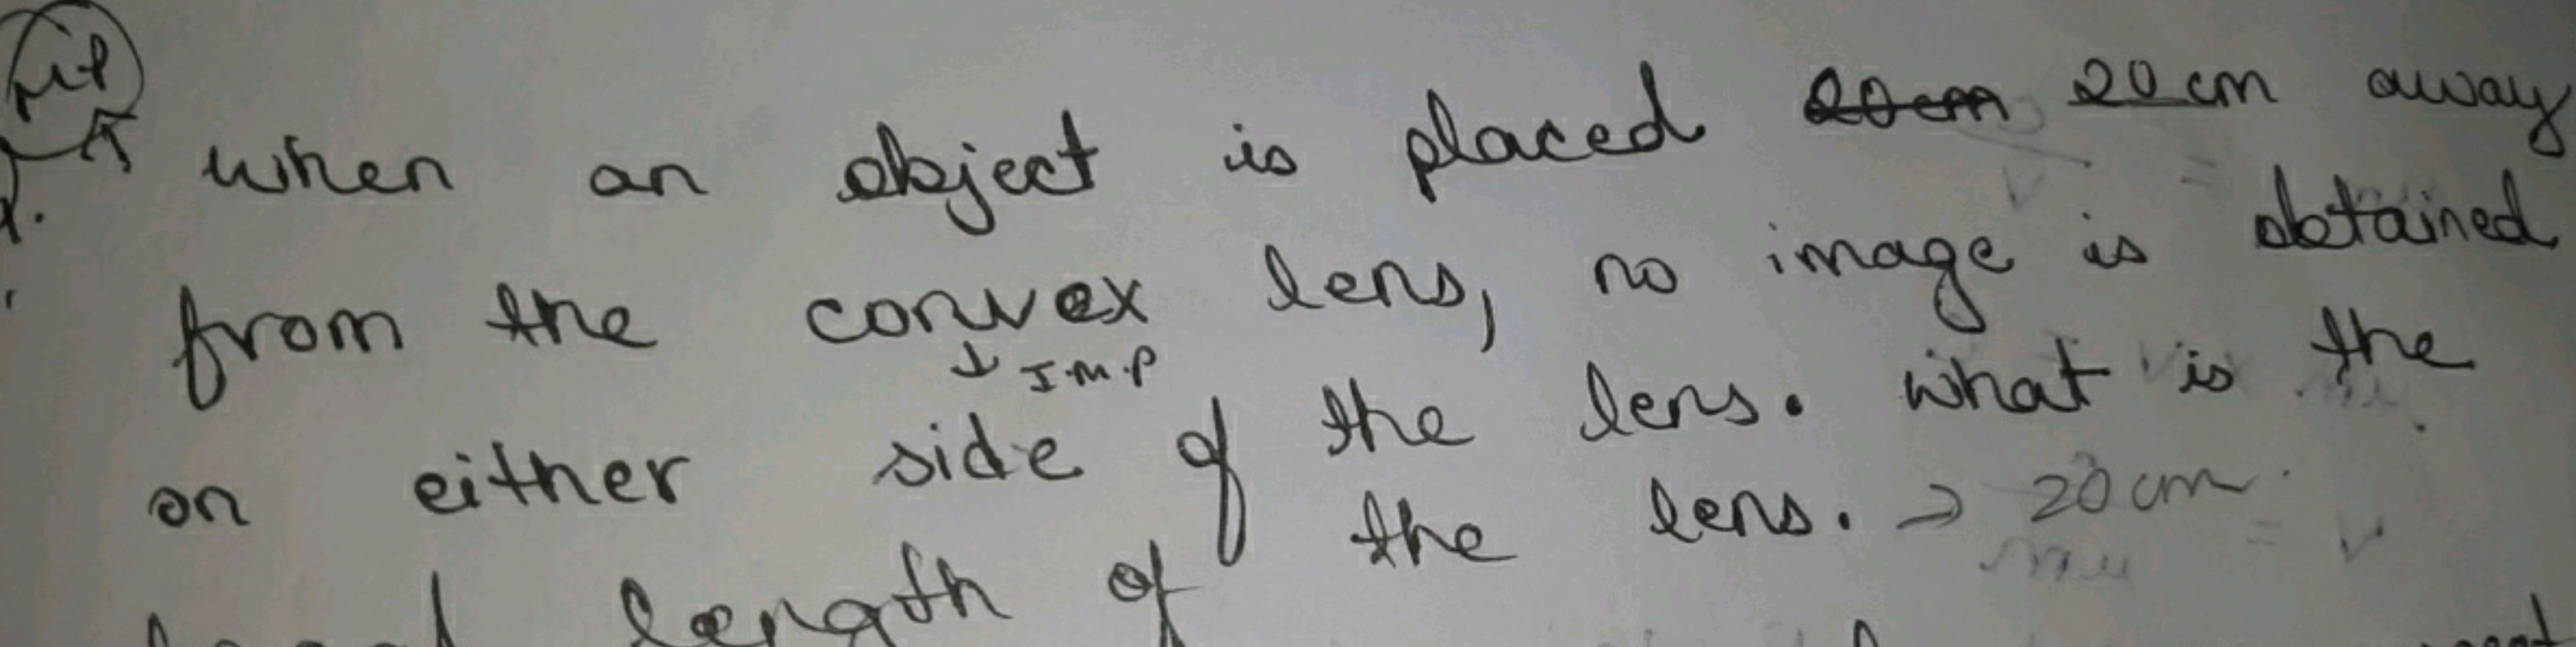 when an object is placed 20 cm away
from the convex lens, no image is obtained
↓ I.M.P
on either side of the lens. what is the
length of the lens. → 20 cm.